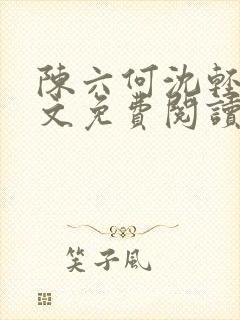 陳六何沈輕
文免費閱讀
笑子風